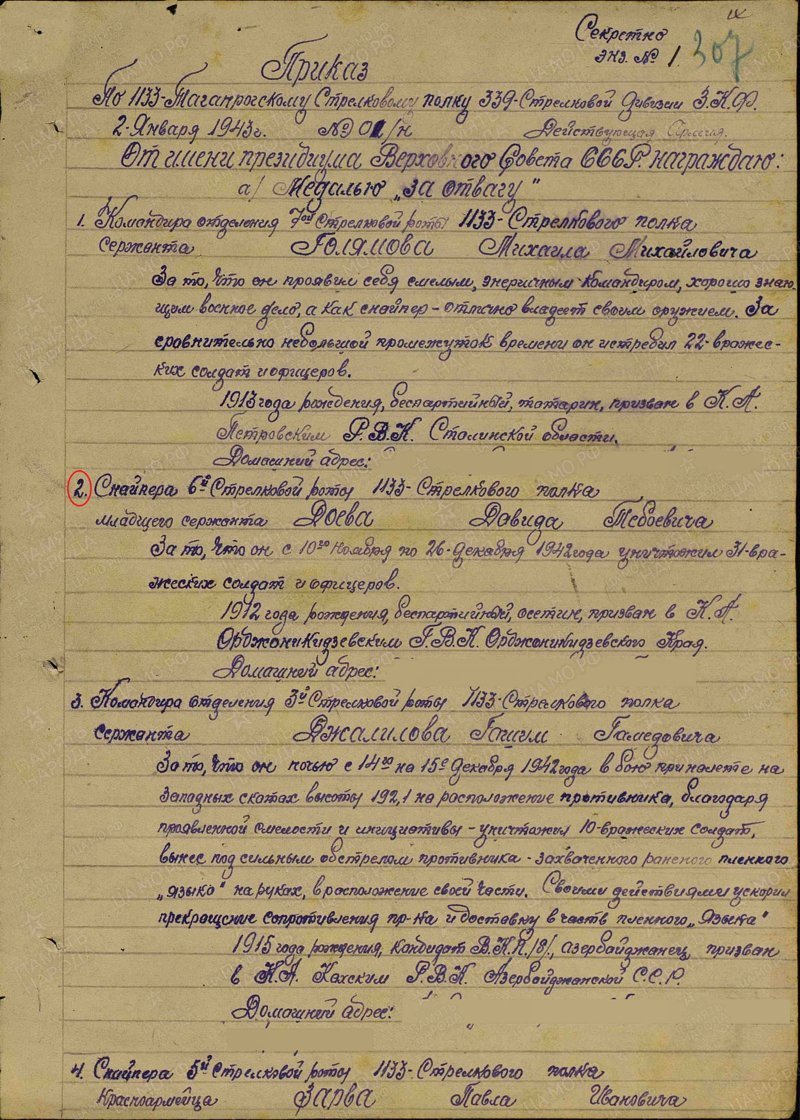 Секретно
экз. № 1
307
Приказ
По 1133-Таганрогскому Стрелковому полку 339-Стрелковой Дивизии З.К.Ф.
2 Января 1943 г. № 01/н Действующая Армия.
От имени президиума Верховного Совета СССР. награждаю:
а/ Медалью „За отвагу"
1. Командира отделения 7ой Стрелковой роты 1133-Стрелкового полка
сержанта ГОЛЯМОВА Михаила Михайловича
За то, что он проявил себя смелым, энергичным командиром, хорошо знаю
щим военное дело, а как снайпер-отлично владеет своим оружием. За
сровнительно небольшой промежуток времени он истребил 22-вражес-
ких солдат и офицеров.
1913 года рождения, беспартийный, татарин, призван в К.А.
Петровским Р.В.К. Сталинской области.
Домашний адрес:
2. Снайпера 6й Стрелковой роты 1133-Стрелкового полка
младшего сержанта Доева Давида Тебоевича
За то, что он с 10го Ноября по 26-Декабря 1942 года уничтожил 31-вра-
жеских солдат и офицеров.
1912 года рождения, беспартийный, осетин, призван в К.А.
Орджоникидзевским Г.В.К. Орджоникидзевского Края.
Домашний адрес:
3. Командира отделения 3й Стрелковой роты 1133-Стрелкового полка
сержанта Джалилова Гашум Гамедовича
За то, что он ночью с 14го на 15е Декабря 1942 года в бою при налете на
западных скатах высоты 192,1 на расположение противника, благодаря
проявленной смелости и инициативы-уничтожил 10-вражеских солдат,
вынес под сильным обстрелом противника-захваченного раненого пленного
„языка" на руках, в расположение своей части. Своими действиями ускорил
прекращение сопротивления пр-ка и доставку в часть пленного „Языка"
1915 года рождения, кандидат В.К.П./б/., азербайджанец, призван
в К.А. Кахским Р.В.К Азербайджанской С.С.Р.
Домашний адрес:
4. Снайпера 5й Стрелковой роты 1133-Стрелкового полка
Красноармейца ЗАРВА Павла Ивановича